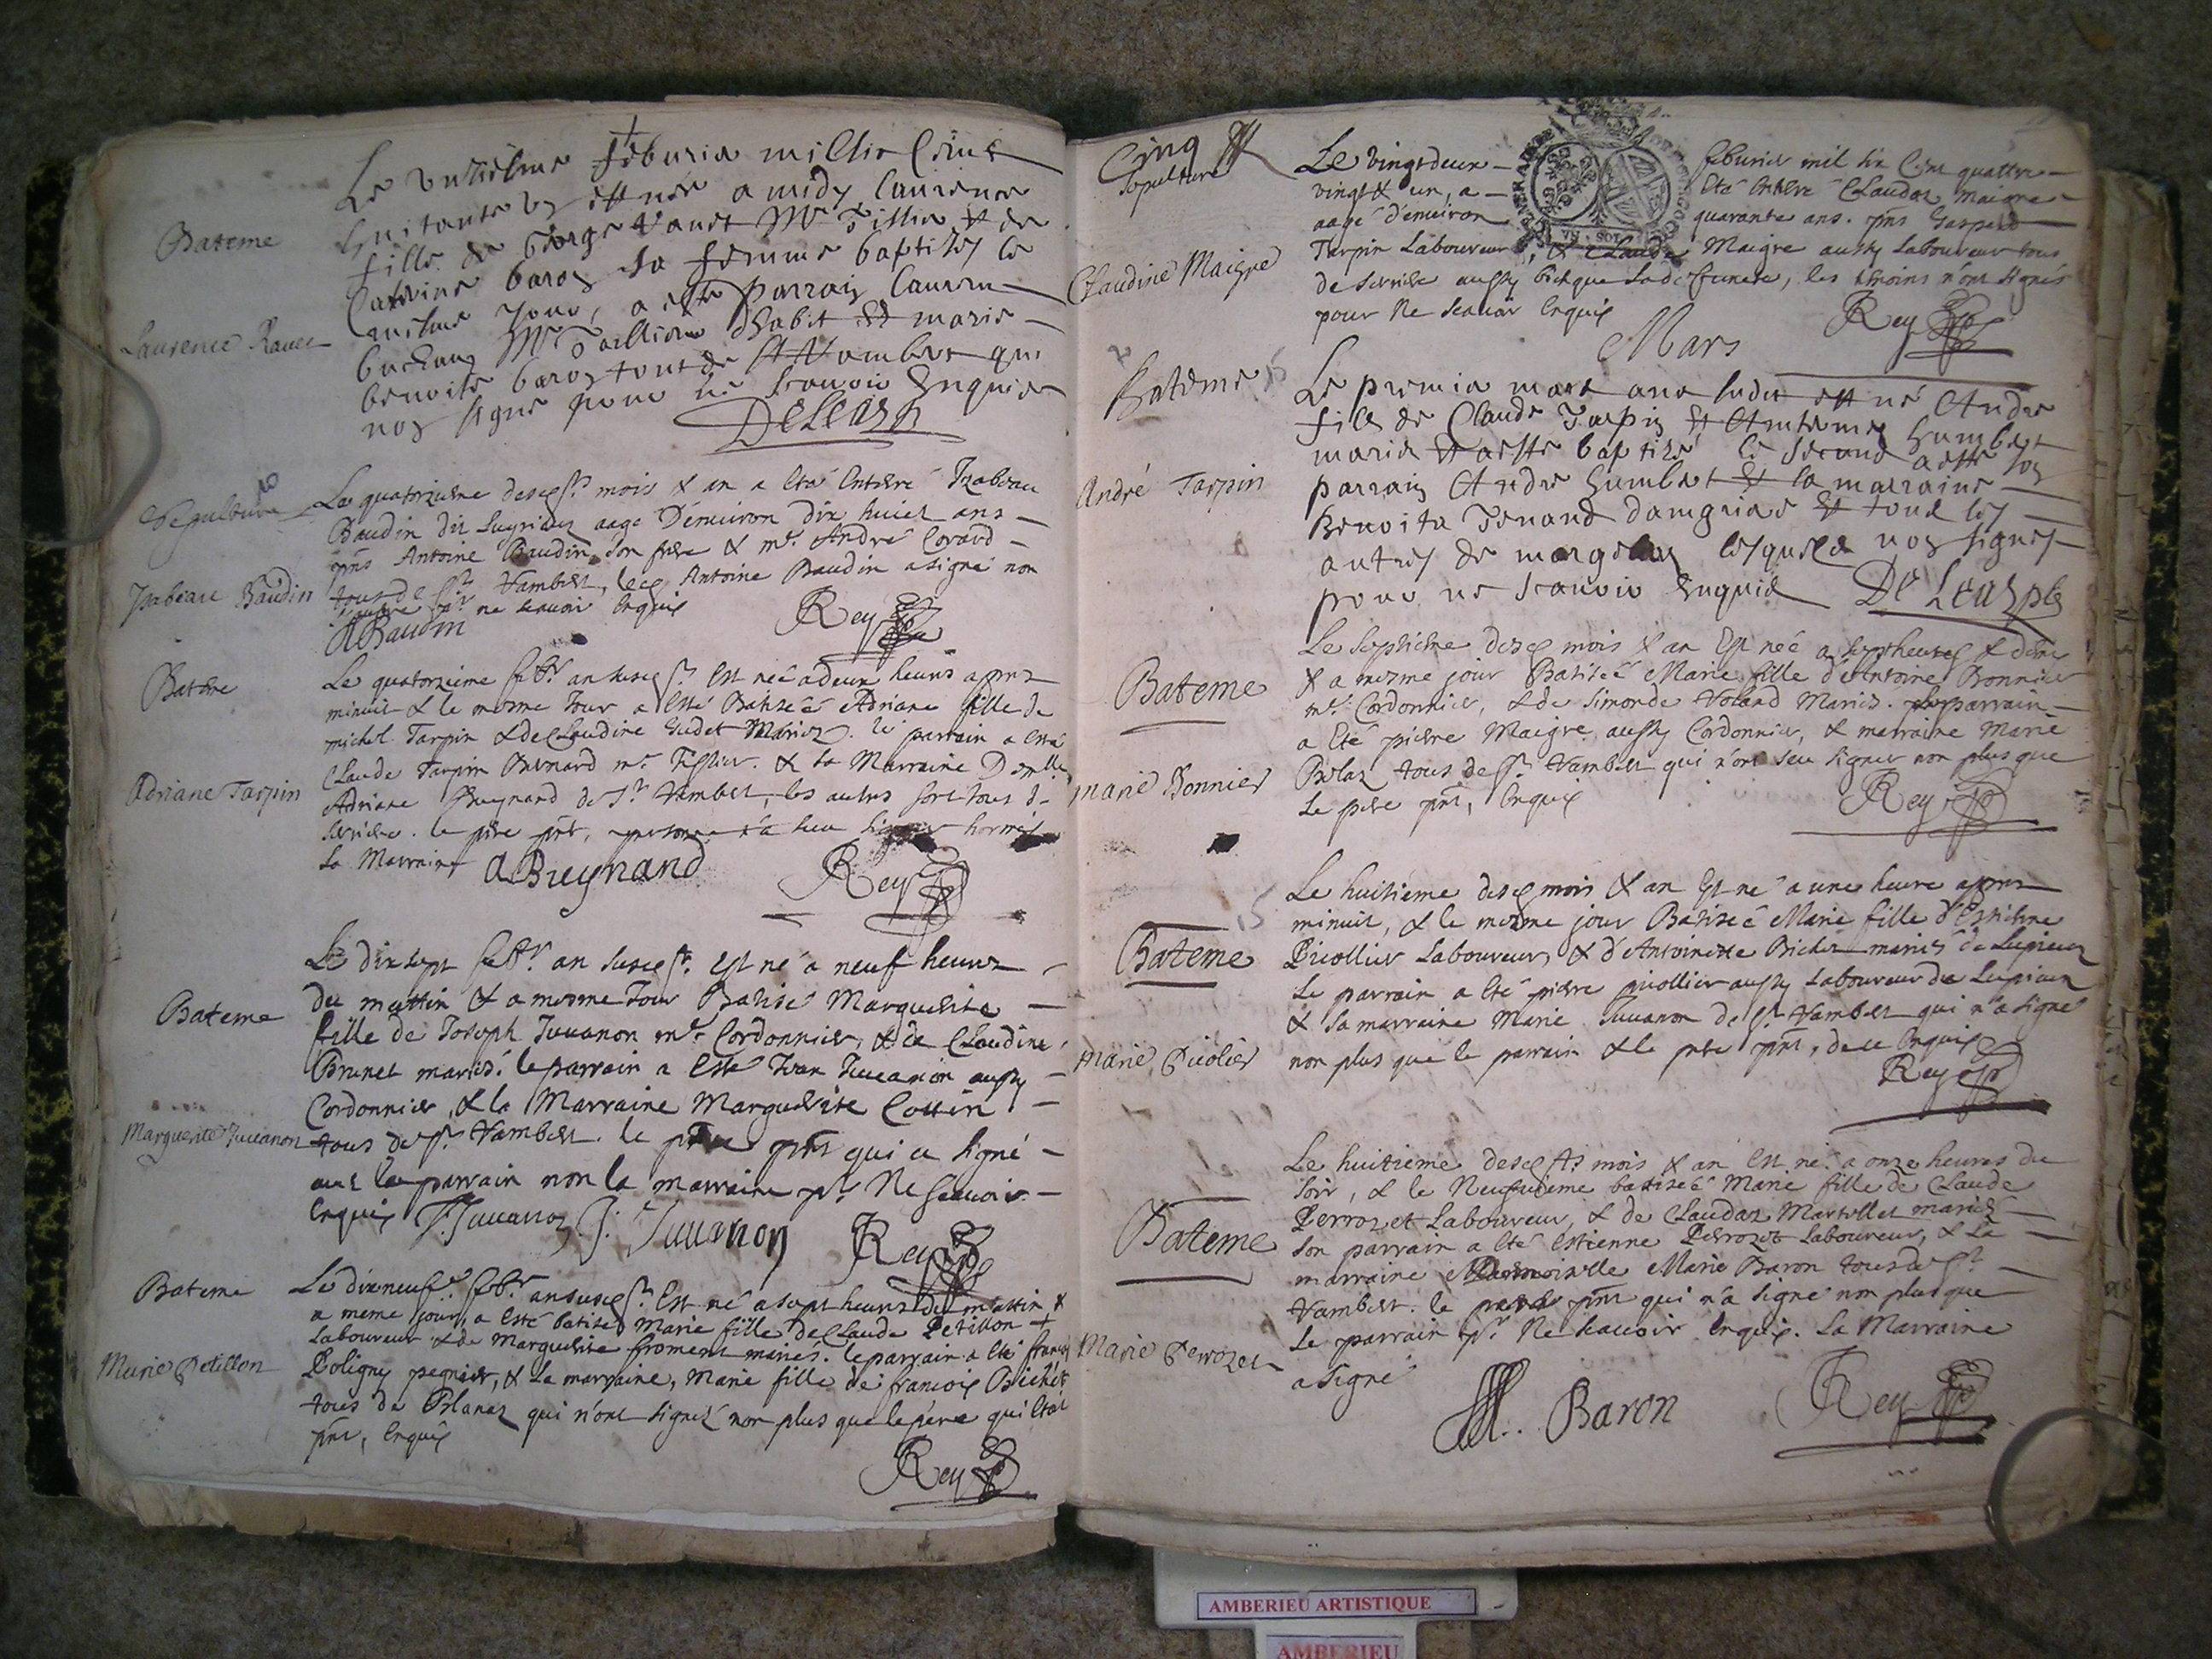 Bateme
Laurence Ravet
Le unziesme feburier mil six cens
huitante un est née a midy laurence
fille de George Ravet Mr Tissier et de
Caterine baron sa femme baptisée le
mesme jour, a esté parrain lauren
buchang Mr Taillieur d'habit et marie
benoite baron tout de St Rambert qui
non signé pour ne scavoir Enquis
Sépulture
Izabeau Baudin
Le quatorzieme desd. mois & an a eté Enterré Izabeau
Baudin dit Lugrieux aagé D'enuiron dix huict ans
pnts Antoine Baudin son frere & mr. André Corard
tous de St Rambert, led. Antoine Baudin a signé non
l'autre pr ne scauoir Enquis
ABaudin
Rey
Bateme
Adriane Tarpin
Le quatorzieme febr. an susd. Est née a deux heures apres
minuit & le mesme Jour a esté Batisée Adriane fille de
michel Tarpin & de Claudine Gudet Mariez. le parrain a esté
Claude Tarpin Mr Tissier. & la Marraine Demlle
Adriane Breynand de St Rambert, les autres sont tous de
Serriere. le pere pnt, personne n'a sceu signer hormis
la Marraine
ABreynand
Rey
Bateme
Marguerite Juuanon
Le dix sept febr. an susd. Est né a neuf heures
du mattin & a mesme Jour Batisé Marguerite
fille de Joseph Juuanon mr. Cordonnier, & de Claudine
Brunet mariés. le parrain a Esté Jean Juuanon aussy
Cordonnier, & la Marraine Marguerite Cottin
tous de St Rambert. le pere pnt qui a signé
auec le parrain non la marraine pr Ne scauoir
Enquis
J. Juuanon
J. Juuanon
Rey
Bateme
Marie Petillon
Le dixneuf. febr. an susd. Est né a sept heures du mattin &
a meme jour, a esté batisée Marie fille de Claude Petillon
Laboureur & de Marguerite froment mariés. le parrain a eté françois
Poligny pegnier, & la marraine, Marie fille de françois Bichet
tous de Blanaz qui n'ont signez non plus que le pere qui Etoit
pnt, Enquis
Rey
Cinq
Sepulture
Claudine Maigre
Le vingt deux feburier mil six Cent quattre
vingt & un, a Eté Enterré Claudaz Maigre
aagé d'enuiron quarante ans. pnts Gaspard
Tarpin Laboureur, & Claude Maigre aussy Laboureur tous
de Serriere aussy bien que ladt. funete, les temoins n'ont signés
pour Ne scauoir Enquis
Rey
Mars
Bateme
André Tarpin
Le premier mars ans sudit est né Andre
fils de Claude Tarpin Et Antoinne humbert
mariés Et a esté baptisé le second a esté son
parrain Andre humbert Et la marraine
Benoita Tenand Et tous les
autres de lesquels non signés
pour ne scauoir Enquis
Bateme
Marie Bonnier
Le septieme desd. mois & an Est née a sept heures & demy
& a mesme jour Batisée Marie fille d'Antoine Bonnier
mr. Cordonnier, & de Simonde Volard Mariés. le parrain
a Eté pierre Maigre aussy Cordonnier, & marraine Marie
Belaz tous de St Rambert qui n'ont sceu signer non plus que
Le pere pnt, Enquis
Rey
Bateme
Marie Piolier
Le huitieme desd. mois & an Est né a une heure apres
minuit, & le mesme jour Batisée Marie fille d'Estienne
Laboureur, & d'Antoinette Bichet mariés de Lupieux
Le parrain a Eté pierre aussy Laboureur de Lupieux
& sa marraine Marie Juuanon de St Rambert qui n'a signé
non plus que le parrain & le pere pnt, de ce Enquis
Rey
Bateme
Marie Perrozet
Le huitieme desd. mois & an Est né a onze heures du
Soir, & le Neufuieme batisée Marie fille de Claude
Perrozet Laboureur, & de Claudaz Martellet mariés
Son parrain a Eté Estienne Perrozet Laboureur, & La
marraine Marie Baron tous de St
Rambert. le pere pnt qui n'a signé non plus que
Le parrain pr Ne scauoir Enquis. La Marraine
a signé
M. Baron
Rey
AMBERIEU ARTISTIQUE
AMBERIEU